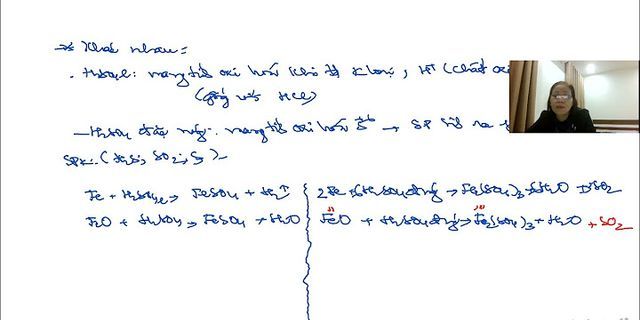 → Khác nhau:
. H2SO4l: mang tính oxi hoá khi td Kloại, H+ (chất oxi
(giống với HCl)
– H2SO4 đặc nóng: mang tính oxi hoá S+6 → SP sinh ra
SPK: (H2S; SO2; S)
Fe + H2SO4l → FeSO4 + H2↑
2Fe + 6H2SO4 đnóng → Fe2(SO4)3 + 6H2O + 3SO2
FeO + H2SO4l → FeSO4 + H2O
FeO + H2SO4 đnóng → Fe2(SO4)3 + H2O + SO2